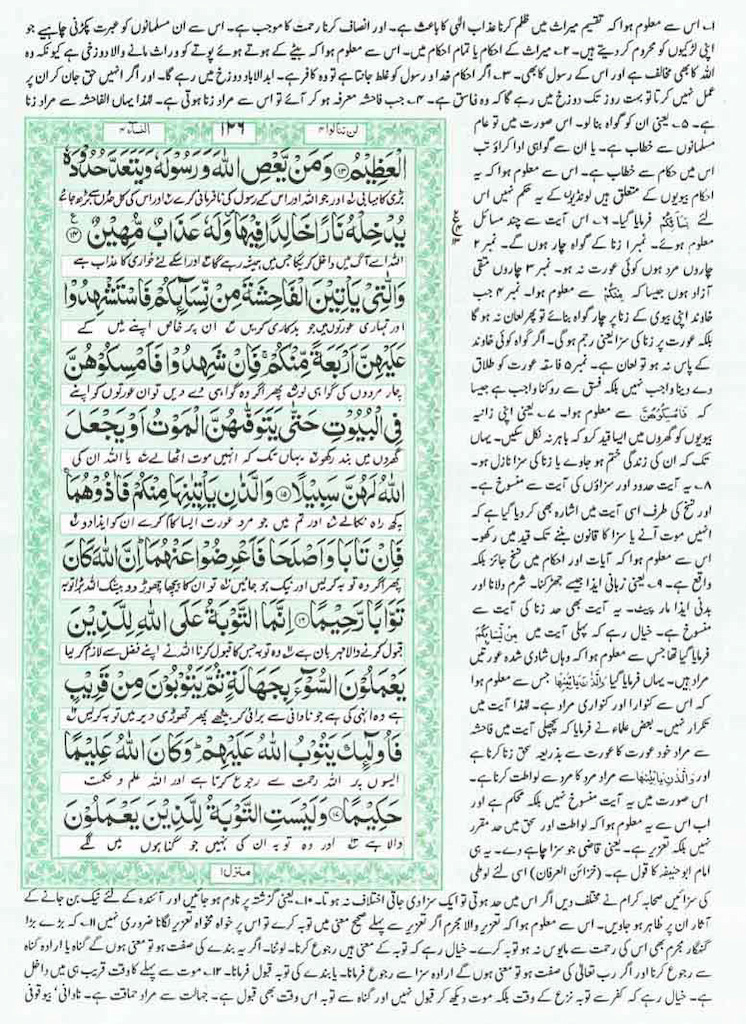 ۱۔ اس سے معلوم ہوا کہ تقسیم میراث میں ظلم کرنا عذاب الٰہی کا باعث ہے۔ اور انصاف کرنا رحمت کا موجب ہے۔ اس سے ان مسلمانوں کو عبرت پکڑنی چاہیے جو
اپنی لڑکیوں کو محروم کر دیتے ہیں۔ ۲۔ میراث کے احکام یا تمام احکام میں۔ اس سے معلوم ہوا کہ بیٹے کے ہوتے ہوئے پوتے کو وراثت ماننے والا دوزخی ہے کیونکہ وہ
اللہ کا بھی مخالف ہے اور اس کے رسول کا بھی۔ ۳۔ اگر احکام خدا و رسول کو غلط جانتا ہے تو وہ کافر ہے۔ ابدالاباد دوزخ میں رہے گا۔ اور اگر انہیں حق جان کر ان پر
عمل نہیں کرتا تو بہت روز تک دوزخ میں رہے گا کہ وہ فاسق ہے۔ ۴۔ جب فاحشہ معرفہ ہو کر آئے تو اس سے مراد زنا ہوتی ہے۔ لہٰذا یہاں الفاحشہ سے مراد زنا
ہے۔ ۵۔ یعنی ان کو گواہ بنا لو۔ اس صورت میں تو عام
مسلمانوں سے خطاب ہے۔ یا ان سے گواہی ادا کراؤ تب
اس میں حکام سے خطاب ہے۔ اس سے معلوم ہوا کہ یہ
احکام بیویوں کے متعلق ہیں لونڈیوں کے یہ حکم نہیں اس
لئے نِسَآئِكُمْ فرمایا گیا۔ ۶۔ اس آیت سے چند مسائل
معلوم ہوئے۔ نمبر ۱ زنا کے گواہ چار ہوں گے۔ نمبر ۲
چاروں مرد ہوں کوئی عورت نہ ہو۔ نمبر ۳ چاروں متقی
آزاد ہوں جیسا کہ مِنْكُمْ سے معلوم ہوا۔ نمبر ۴ جب
خاوند اپنی بیوی کے زنا پر چار گواہ بنائے تو پھر لعان نہ ہو گا
بلکہ عورت پر زنا کی سزا یعنی رجم ہو گی۔ اگر گواہ کوئی خاوند
کے پاس نہ ہو تو لعان ہے۔ نمبر ۵ فاسقہ عورت کو طلاق
دے دینا واجب نہیں بلکہ فسق سے روکنا واجب ہے جیسا
کہ فَامْسِكُوْهُنَّ سے معلوم ہوا۔ ۷۔ یعنی اپنی زانیہ
بیویوں کو گھروں میں ایسا قید کرو کہ باہر نہ نکل سکیں۔ یہاں
تک کہ ان کی زندگی ختم ہو جاوے یا زنا کی سزا نازل ہو۔
۸۔ یہ آیت حدود اور سزاؤں کی آیت سے منسوخ ہے۔
اور نسخ کی طرف اسی آیت میں اشارہ بھی کر دیا گیا ہے کہ
انہیں موت آنے یا سزا کا قانون بننے تک قید میں رکھو۔
اس سے معلوم ہوا کہ آیات اور احکام میں نسخ جائز بلکہ
واقع ہے۔ ۹۔ یعنی زبانی ایذا جیسے جھڑکنا۔ شرم دلانا اور
بدنی ایذا مار پیٹ۔ یہ آیت بھی حد زنا کی آیت سے
منسوخ ہے۔ خیال رہے کہ پہلی آیت میں مِنْ نِّسَآئِكُمْ
فرمایا گیا تھا جس سے معلوم ہوا کہ وہاں شادی شدہ عورتیں
مراد ہیں۔ یہاں فرمایا گیا وَالَّذٰنِ يَاْتِيٰنِهَا جس سے معلوم ہوا
کہ اس سے کنوارا اور کنواری مراد ہے۔ لہٰذا آیت میں
تکرار نہیں۔ بعض علماء نے فرمایا کہ پچھلی آیت میں فاحشہ
سے مراد خود عورت کا عورت سے بذریعہ سحق زنا کرنا ہے
اور وَالَّذٰنِ يَاْتِيٰنِهَا سے مراد مرد کا مرد سے لواطت کرنا ہے۔
اس صورت میں یہ آیت منسوخ نہیں بلکہ محکم ہے اور
اب اس سے یہ معلوم ہوا کہ لواطت اور سحق میں حد مقرر
نہیں بلکہ تعزیر ہے۔ یعنی قاضی جو سزا چاہے دے۔ یہ ہی
امام ابو حنیفہ کا قول ہے۔ (خزائن العرفان) اسی لئے لوطی
لن تنالوا ۴
۱۲۶
النسآء ۴
الْعَظِيْمُ ۝۱۳ وَمَنْ يَّعْصِ اللهَ وَرَسُوْلَهٗ وَيَتَعَدَّ حُدُوْدَهٗ
بڑی کامیابی اور جو اللہ اور اس کے رسول کی نافرمانی کرے اور اس کی کل حدوں سے بڑھ جائے
يُدْخِلْهُ نَارًا خَالِدًا فِيْهَا وَلَهٗ عَذَابٌ مُّهِيْنٌ ۝۱۴
اللہ اسے آگ میں داخل کریگا جس میں ہمیشہ رہے گا اور اسکے لئے خواری کا عذاب ہے
وَالّٰتِيْ يَاْتِيْنَ الْفَاحِشَةَ مِنْ نِّسَآئِكُمْ فَاسْتَشْهِدُوْا
اور تمہاری عورتوں میں جو بدکاری کریں ان پر خاص اپنے میں کے
عَلَيْهِنَّ اَرْبَعَةً مِّنْكُمْ ۚ فَاِنْ شَهِدُوْا فَاَمْسِكُوْهُنَّ
چار مردوں کی گواہی لو پھر اگر وہ گواہی دے دیں تو ان عورتوں کو اپنے
فِي الْبُيُوْتِ حَتّٰى يَتَوَفّٰهُنَّ الْمَوْتُ اَوْ يَجْعَلَ
گھروں میں بند رکھو یہاں تک کہ انہیں موت اٹھا لے یا اللہ ان کی
اللهُ لَهُنَّ سَبِيْلًا ۝۱۵ وَالَّذٰنِ يَاْتِيٰنِهَا مِنْكُمْ فَاٰذُوْهُمَا
کچھ راہ نکالے اور تم میں جو مرد عورت ایسا کام کرے ان کو ایذا دو
فَاِنْ تَابَا وَاَصْلَحَا فَاَعْرِضُوْا عَنْهُمَا ؕ اِنَّ اللهَ كَانَ
پھر اگر وہ توبہ کر لیں اور نیک ہو جائیں تو ان کا پیچھا چھوڑ دو بیشک اللہ بڑا توبہ
تَوَّابًا رَّحِيْمًا ۝۱۶ اِنَّمَا التَّوْبَةُ عَلَى اللهِ لِلَّذِيْنَ
قبول کرنے والا مہربان ہے وہ توبہ جس کا قبول کرنا اللہ نے اپنے فضل سے لازم کر لیا
يَعْمَلُوْنَ السُّوْٓءَ بِجَهَالَةٍ ثُمَّ يَتُوْبُوْنَ مِنْ قَرِيْبٍ
ہے وہ انہی کی ہے جو نادانی سے برائی کر بیٹھیں پھر تھوڑی دیر میں توبہ کر لیں
فَاُولٰٓئِكَ يَتُوْبُ اللهُ عَلَيْهِمْ ؕ وَكَانَ اللهُ عَلِيْمًا
ایسوں پر اللہ رحمت سے رجوع کرتا ہے اور اللہ علم و حکمت
حَكِيْمًا ۝۱۷ وَلَيْسَتِ التَّوْبَةُ لِلَّذِيْنَ يَعْمَلُوْنَ
والا ہے اور وہ توبہ ان کی نہیں جو گناہوں میں لگے
منزل ۱
کی سزائیں صحابہ کرام نے مختلف دیں اگر اس میں حد ہوتی تو ایک سزا دی جاتی اختلاف نہ ہوتا۔ ۱۰۔ یعنی گزشتہ پر نادم ہو جائیں اور آئندہ کے لئے نیک بن جانے کے
آثار ان پر ظاہر ہو جاویں۔ اس سے معلوم ہوا کہ تعزیر والا مجرم اگر تعزیر سے پہلے صحیح معنی میں توبہ کرے تو اس پر خواہ مخواہ تعزیر لگانا ضروری نہیں ۱۱۔ کہ بڑے بڑا
گنہگار مجرم بھی اس کی رحمت سے مایوس نہ ہو توبہ کرے۔ خیال رہے کہ توبہ کے معنی ہیں رجوع کرنا۔ لوٹنا۔ اگر یہ بندے کی صفت ہو تو معنی ہوں گے گناہ یا ارادہ گناہ
سے رجوع کرنا اور اگر رب تعالیٰ کی صفت ہو تو معنی ہوں گے ارادہ سزا سے رجوع فرمانا۔ یا بندے کی توبہ قبول فرمانا۔ ۱۲۔ موت سے پہلے کا وقت قریب ہی میں داخل
ہے۔ خیال رہے کہ کفر سے توبہ نزع کے وقت بلکہ موت دیکھ کر قبول نہیں اور گناہ سے توبہ اس وقت بھی قبول ہے۔ جہالت سے مراد حماقت ہے۔ نادانی' بیوقوفی